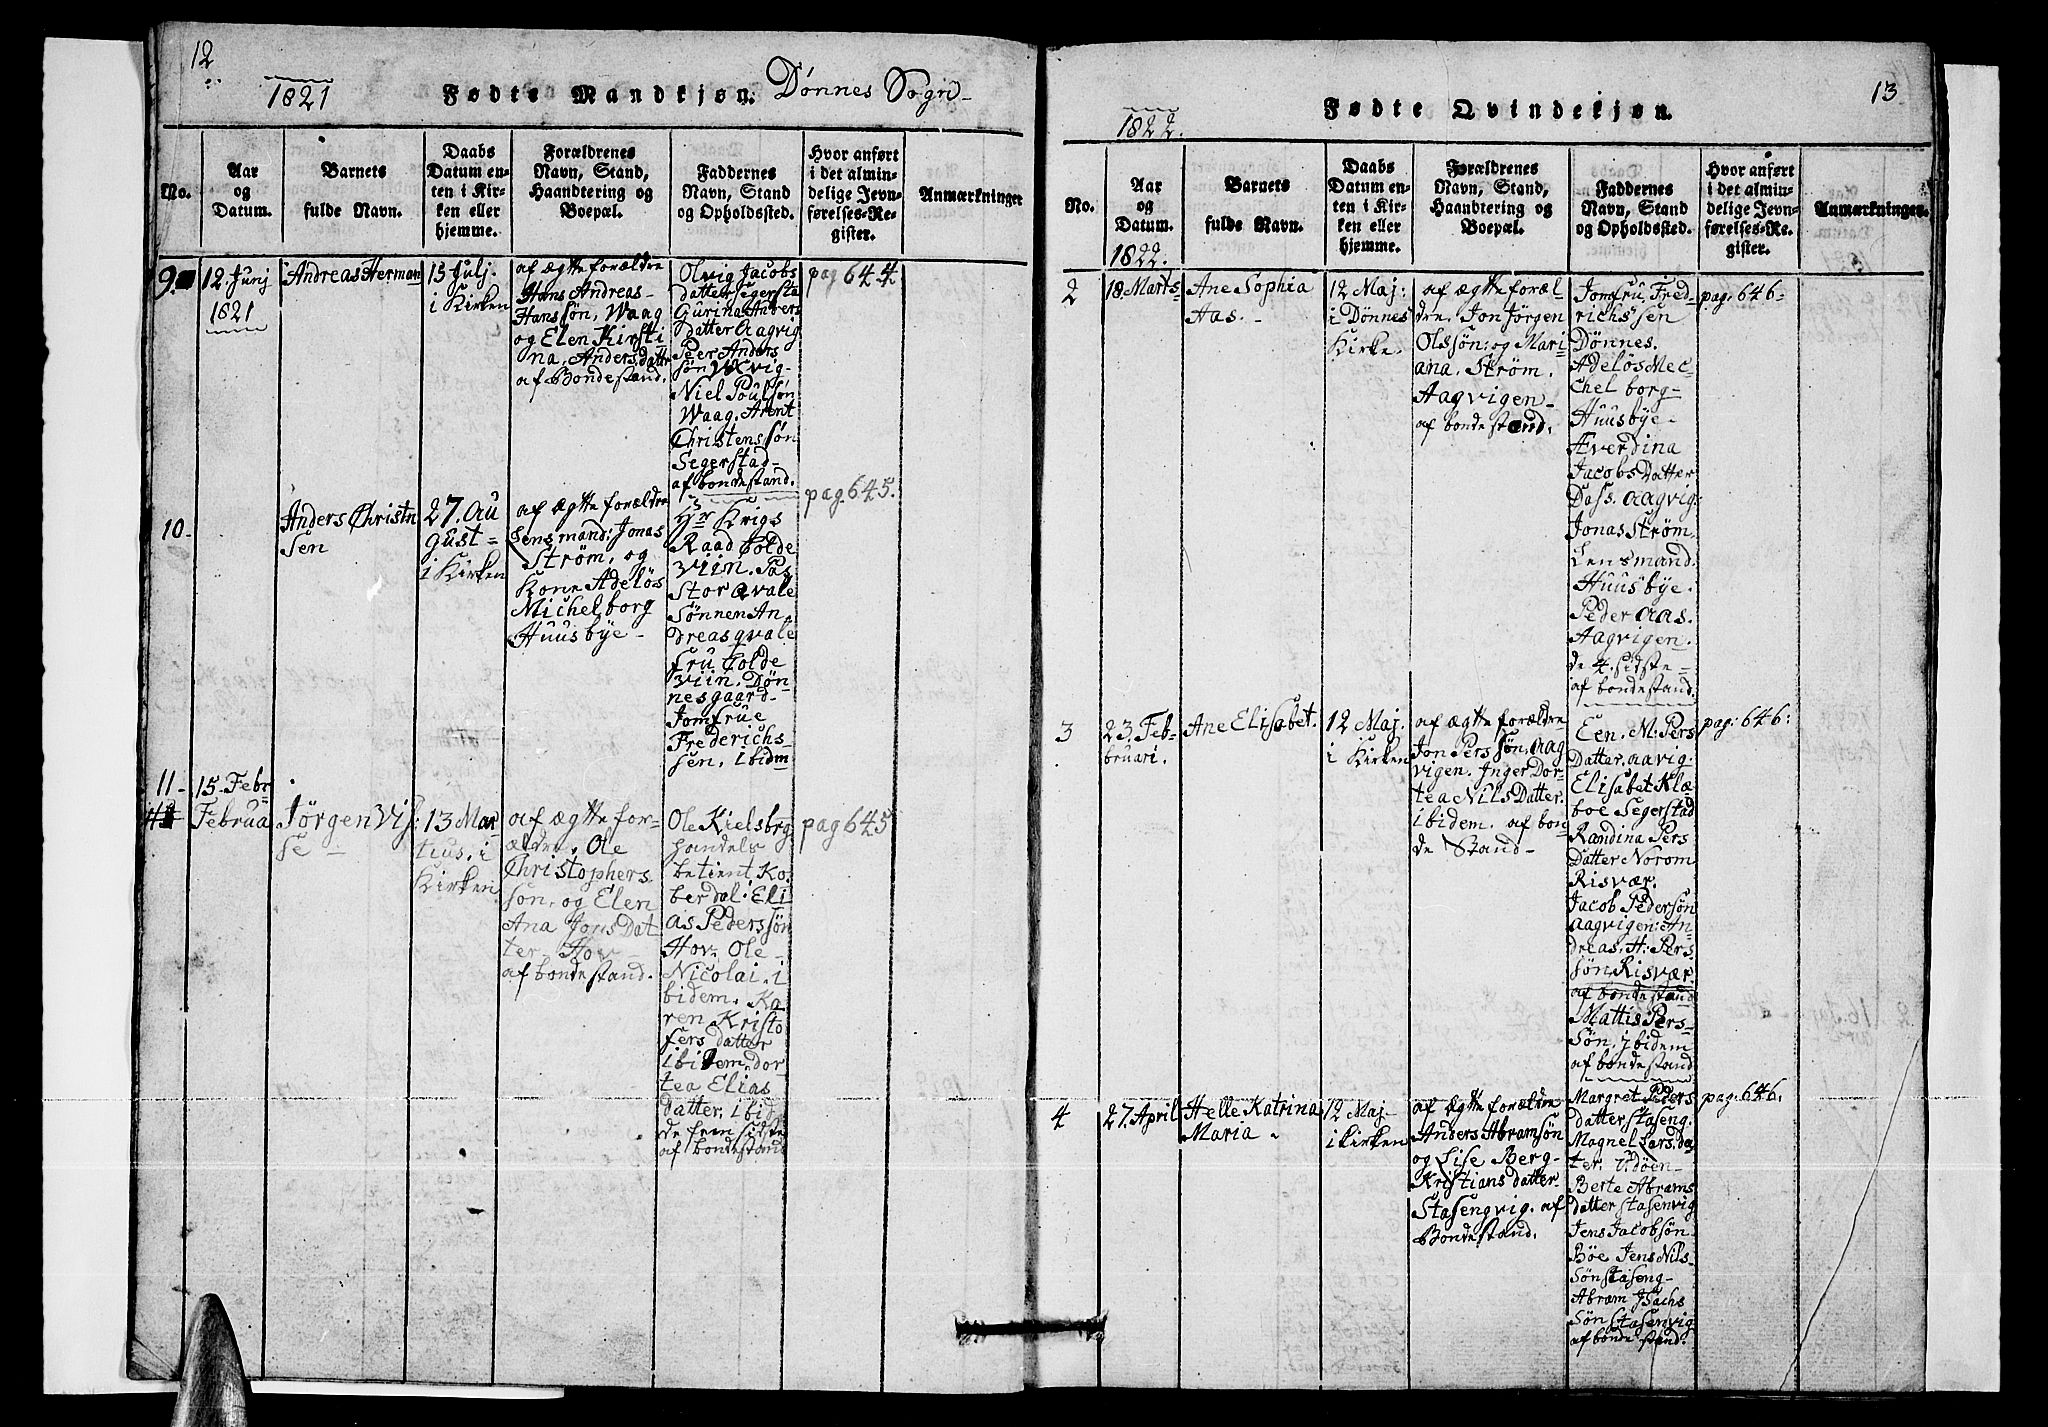 12
1821 Fødte Mandkjøn. Dønnes Sogn
No.
Aar
og
Datum.
Barnets
fulde Navn.
Daabs
Datum en-
ten i Kir-
ken eller
hjemme.
Forældrenes
Navn, Stand,
Haandtering og
Boepæl.
Faddernes
Navn, Stand
og Opholdssted.
Hvor anført
i det almin-
delige Jevn-
førelses-Re-
gister.
Anmærkninger
9.
12. Junj
1821
Andreas Herman
15 Julj.
i Kirken
af ægtte forældre
Hans Andreas-
Hans søn, Waag
og Elen Kirsti
na, Anders datter
af Bondestand.
Olvig Jacobs
datter Segersta
Gurina Anders
Datter Aagvig
Peer Anders
søn
Niel Poulsøn
Waag. Arent
Christens søn
Segerstad-
af bondestand.
pag 644
10.
Anders Christn
sen
27. Au
gust=
i Kirken
af ægtte forældre
Lensmand: Jonas
Strøm, og
Kone Adeløs
Michelborg
Huusbye-
Hr Krigs
Raad Colde
viin. Pas
stor qvale
Sønnen An
dreas qvale
fru Colde
viin. Døn-
nesgaard-
Jomfrue
Frederichs-
sen, ibidm
pag 645.
11-
15. Febr
Februa
Jørgen Vis:
se
13 Mar
tius. i
Kirken
af ægtte for-
ældre, Ole
Christophers
søn, og Elen
Ana Jons Dat
ter Hov
af bondestand.
Ole Kielsbrg
handels
betient Ko:
berdal: Eli
as Peders søn
Hov. Ole-
Nicolai. i
bidem. Ka
ren Kristo
fers datter
ibidem. dor
tea Elias
datter. ibid
de fem sidste
af bondestand
pag 645
13
1822. Fødte Qvindekjøn.
No.
Aar
og
Datum.
1822.
Barnets
fulde Navn.
Daabs
Datum en-
ten i Kir-
ken eller
hjemme.
Forældrenes
Navn, Stand,
Haandtering og
Boepæl.
Faddernes
Navn, Stand
og Opholdssted.
Hvor anført
i det almin-
delige Jevn-
førelses-Re-
gister.
Anmærkninger.
2
18. Marts-
Ane Sophia
Aas. -
12 Maj:
i Dønnes
Kirke.
af ægtte foræl-
dre. Jon Jørgen
Olssøn: og Mari-
ana. Strøm.
Aagvigen-
af bondestand.
Jomfru Fred-
richs sen
Dønnes.
Adeløs Mec-
chel borg-
Huusbye-
Æverdina
Jacobs Datter
Dass. Aagvig:
Jonas Strøm
Lensmand.
Huusbye.
Peder Aas.
Aagvigen.
de 4. sidste-
af bondestand.
pag: 646-
3
23. Feb-
bruari.
Ane Elisabet.
12 Maj:
i Kirken
af ægtte forældre
Jon Pers søn, Aag
vigen. Inger Dor-
tea Nils Datter.
ibidem. af bon-
de Stand-
Een. M. Pers
Datter. Aavig.
Elisabet Klæ-
boe Segerstad
Randina Pers
Datter Norom
Risvær.
Jacob Pedersøn
Aagvigen: An-
dreas. H: Pers-
søn, Risvær
af bondestand
Mattis Pers-
søn. ibidem
af bondestand
pag: 646:
4
27. April
Helle Katrina
Maria
12 Maj-
i Kirken
af ægtte forældre
Anders Abramsøn
og Lise Berg-
Kristians datter-
Stasengvig. af
Bondestand.
Margret Peders
datter Staseng.
Magnel Lars da
ter. Udöen-
Berte Abrams
datter Stasenvig
Jens Jacobsøn
Bøe Jens Nils-
Søn Staseng-
Abram Isachs
Søn Stasenvig
af bonde stand.
pag: 646.